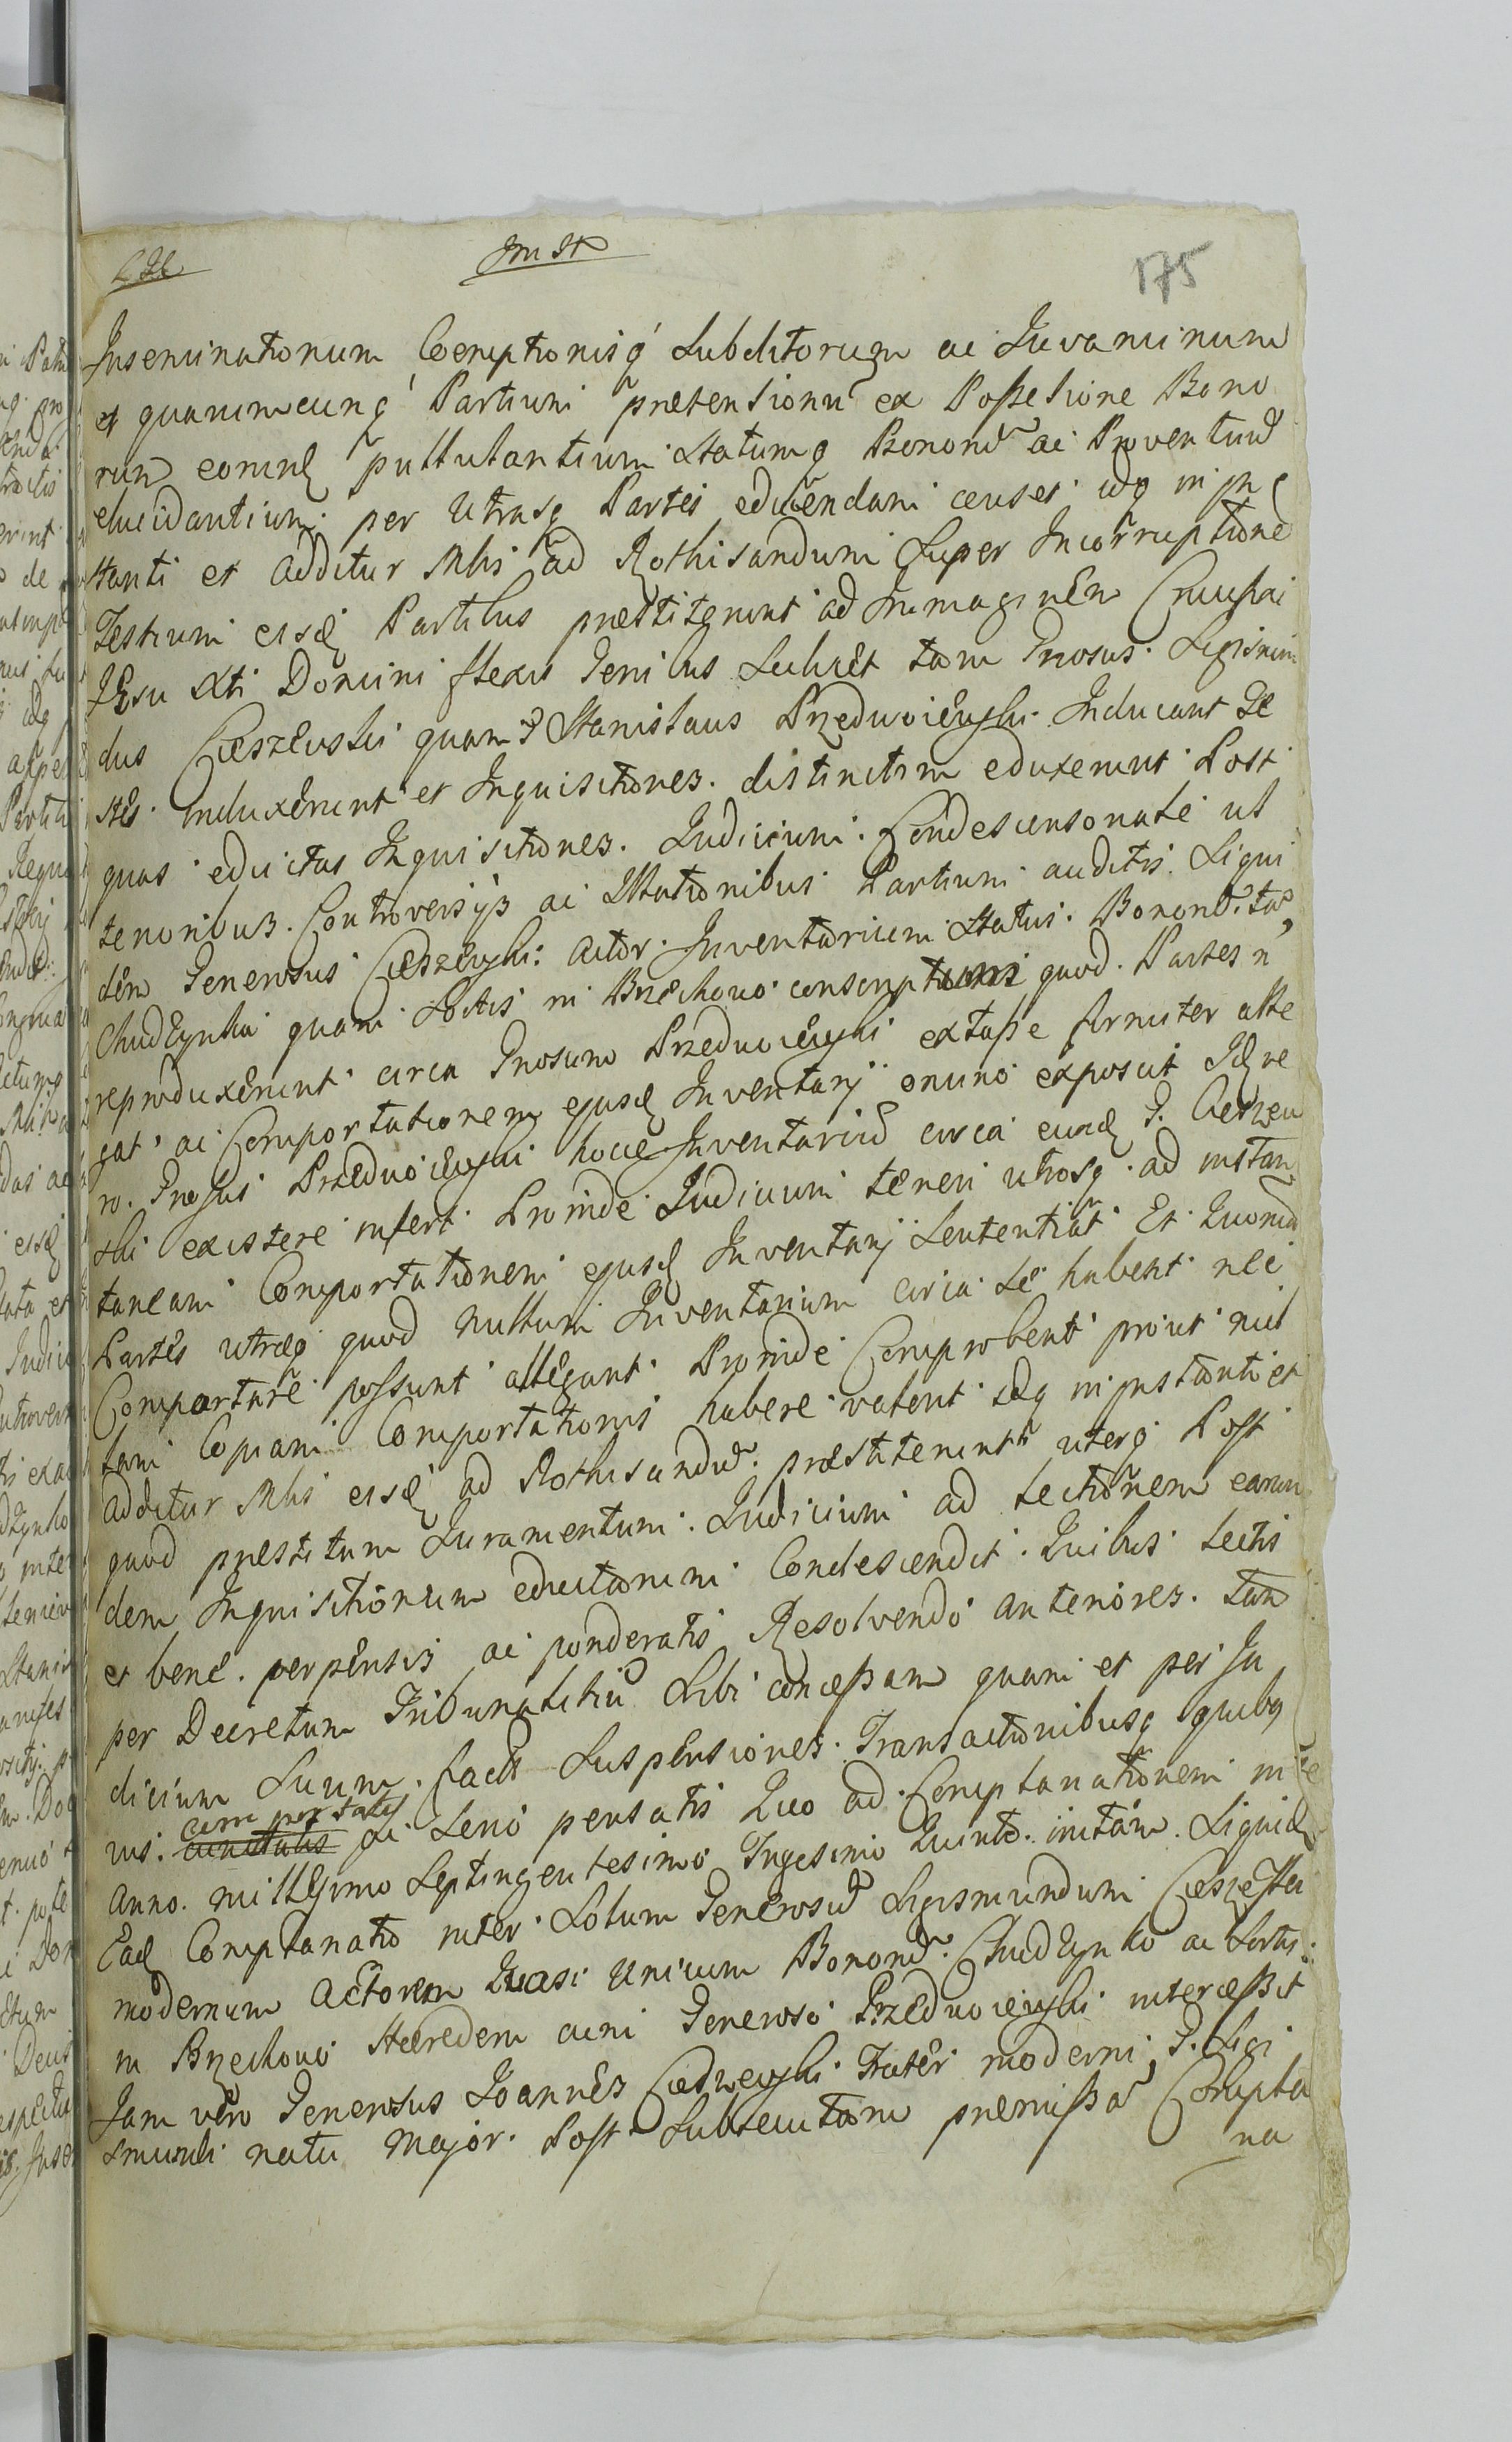 175
Inseminationum Coemptionisq́ Subditorum ac Iuvaminum
et quarumcunq́ Partium prætensionū ex Poßeßione Bono
rum eorund pullulantium Statumq Bonorū ac Proventuū
elucidantium per Utrasq Partes educendam censet idq in jns
tanti et additur Mlis ad Rothisandum Super Incorruptione
Testium eisd Partibus præstiterunt ad Immaginem Crucifixi
IEsu Xti Domini flexis Genibus tam Gnosus Sigismun
dus Cieszewski quam G Stanislaus Przedwoiewski Inducant Te
stes induxerunt et Inquisitiones distinctim eduxerunt Post
quas eductas Inquisitiones Iudicium Condescensoriale ul
terioribus Controversijs ac Illationibus Partium auditis Siqui
dem Generosus Cieszewski Actor Inventarium Status Bonorū tā
Chudzynka quam Sortis in Brzechowo conscriptum quod Partes n
reproduxerunt circa Gnosum Przedwoiewski extaße firmiter alle
gat ac Comportationem ejusd Inventarij omnino exposcit Id ve
ro Gnosus Przedwoiewski hocce Inventariū circa eund G. Cieszew
ski existere infert Proinde Iudicium teneri utrosq ad instan
taneam Comportationem ejusd Inventarij Sententiat Et Quoniā
Partes utræq quod nullum Inventarium circa Se habent nec
Comportare possunt allegant Proinde Comprobent prout nul
lam Copiam Comportationis habere valent idq in jnstanti et
additur Mlis eisd ad Rothisandū præstiterunt uterq Post
quod præstitum Iuramentum Iudicium ad lectionem earun
dem Inquisitionum eductarum Condescendit Quibus lectis
et bene perpensis ac ponderatis Resolvendo anteriores tam
per Decretum Tribunalitiū Sibi conceßam quam et per Iu
dicium Suum factas Suspensiones Transactionibusq quibq
vis cunctatis ac Serio pensatis Quo ad Complanationem in
Anno millesimo Septingentesimo Trigesimo Quinto initam Siquid
Ead Complanatio inter Solum Generosū Sigismundum Cieszewski
modernum Actorem Quasi Unicum Bonorū Chudzynko ac Sortis
in Brzechowo Hæredem cum Generoso Przedwoiewski interceßit
Iam vero Generosus Ioannes Cieszewski Frater moderni G. Sigi
smundi natu Major Post Subsecutam præmißā Compla
na